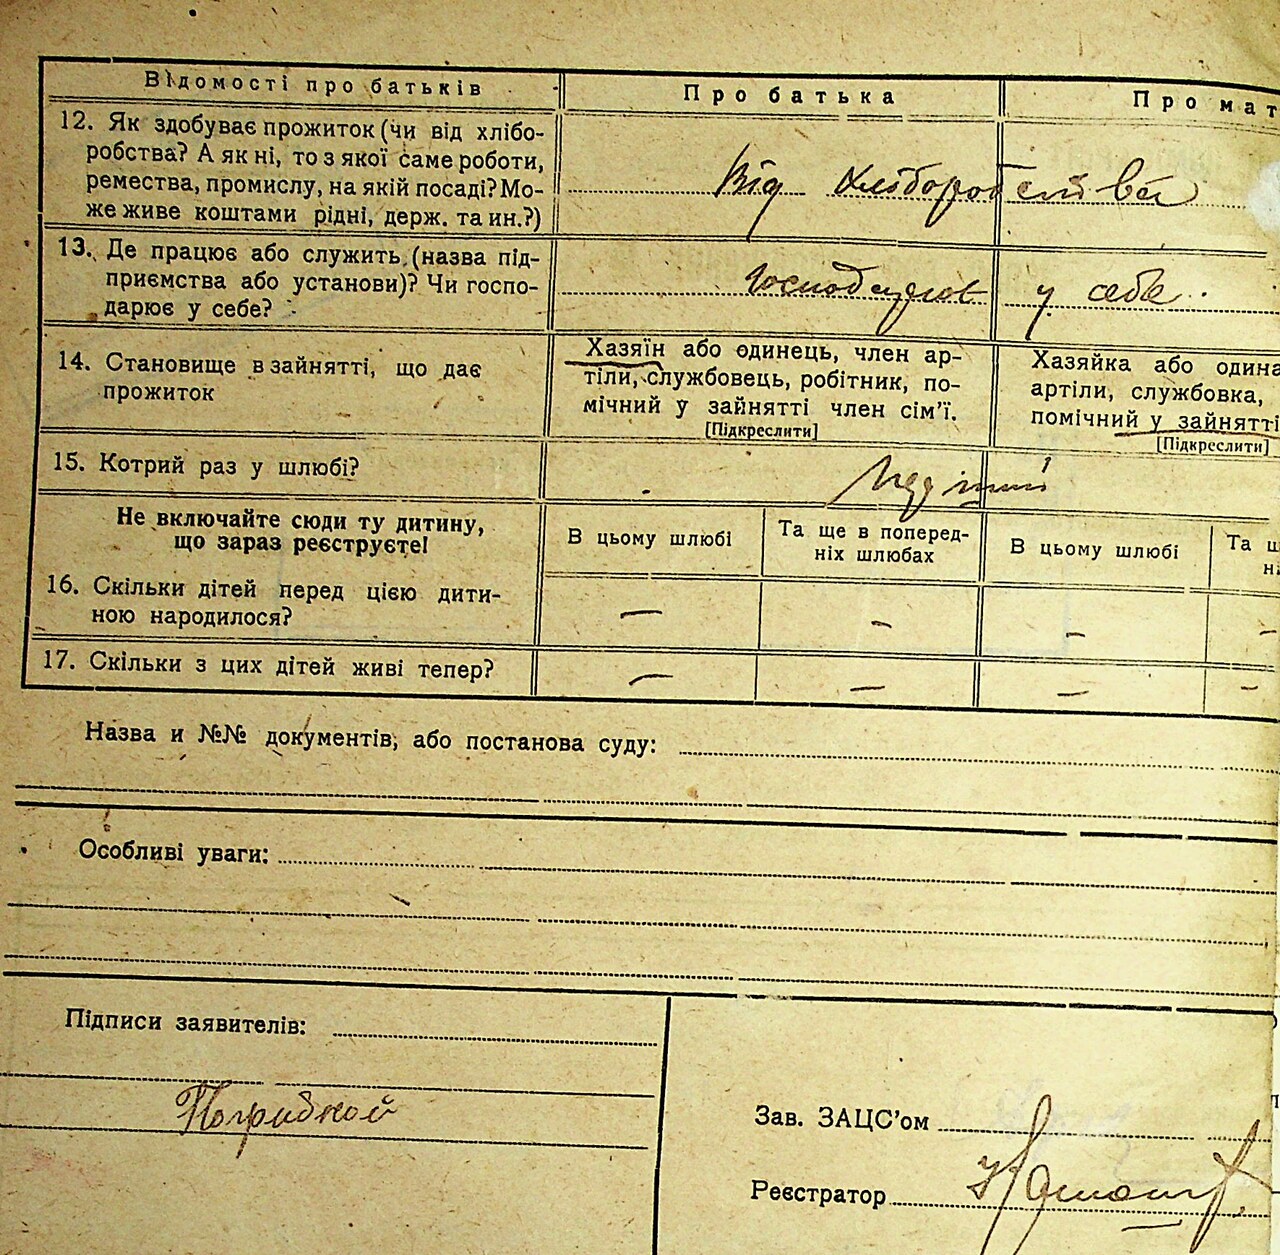 Відомості про батьків
Про батька
Про мат
12. Як здобуває прожиток (чи від хлібо-
робства? А як ні, то з якої саме роботи,
ремества, промислу, на якій посаді? Мо-
же живе коштами рідні, держ. та ин.?)
Від хліборобства
13. Де працює або служить (назва під-
приємства або установи)? Чи госпо-
дарює у себе?
у себе
14. Становище в зайнятті, що дає
прожиток
Хазяїн або одинець, член ар-
тіли, службовець, робітник, по-
мічний у зайнятті член сім'ї.
[Підкреслити]
Хазяйка або одина
артіли, службовка,
помічний у зайнятті
[Підкреслити]
15. Котрий раз у шлюбі?
Не включайте сюди ту дитину,
що зараз реєструєте!
В цьому шлюбі
Та ще в поперед-
ніх шлюбах
В цьому шлюбі
Та щ
ні
16. Скільки дітей перед цією дити-
ною народилося?
— — — —
17. Скільки з цих дітей живі тепер?
— — — —
Назва и №№ документів, або постанова суду:
Особливі уваги:
Підписи заявителів:
Зав. ЗАЦС'ом
Реєстратор